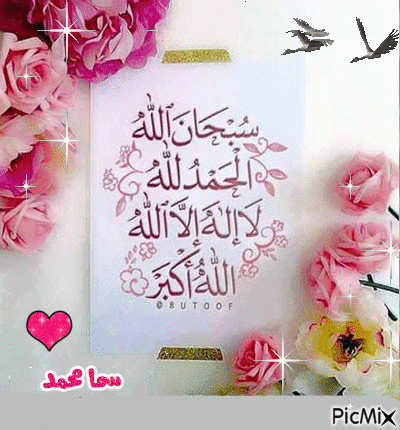 سُبْحَانَ ٱللَّهِ
الْحَمْدُ لِلَّهِ
لَا إِلَٰهَ إِلَّا ٱللَّهُ
اللَّهُ أَكْبَرْ
@BUTOOF
سما محمد
PicMix